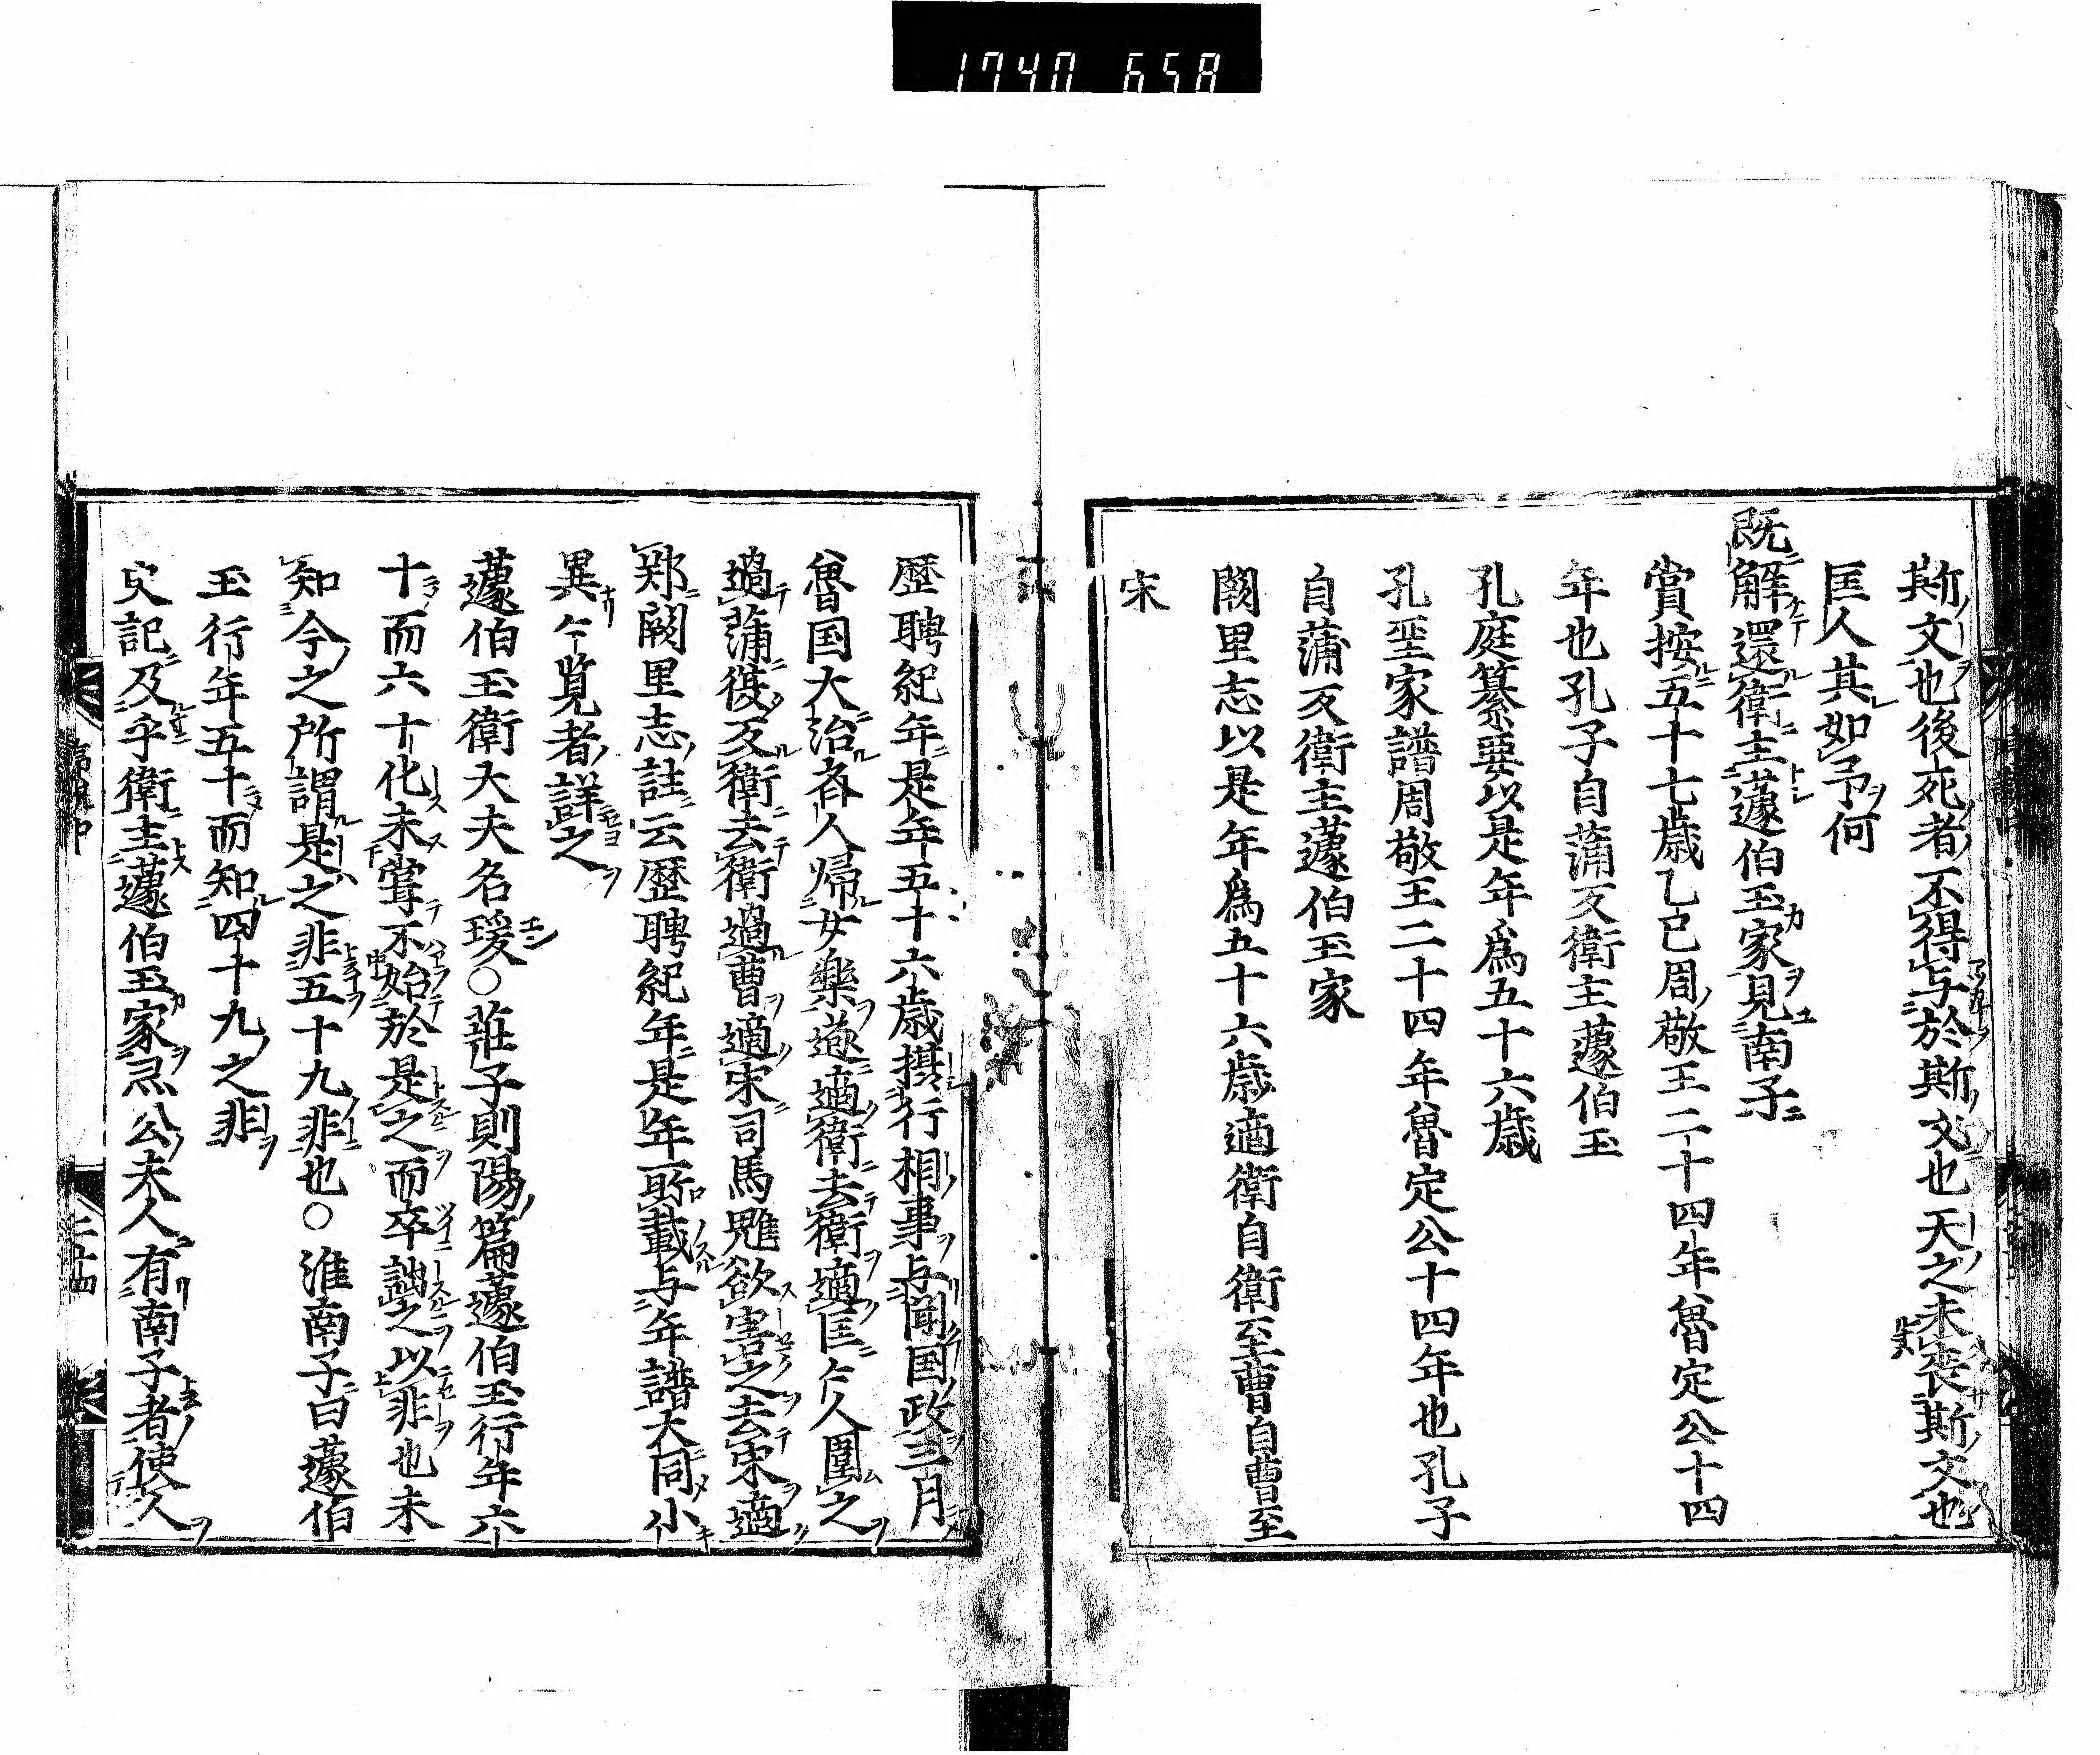 1740 658
斯文也後死者不得与於斯文也天之未喪斯文也
匡人其如予何
既解還衛主蘧伯玉家見南子
賞按五十七歳乙巳周敬王二十四年魯定公十四
年也孔子自蒲反衛主蘧伯玉
孔庭纂要以是年爲五十六歳
孔聖家譜周敬王二十四年魯定公十四年也孔子
自蒲反衛主蘧伯玉家
闕里志以是年爲五十六歳適衛自衛至曹自曹至
宋
歴聘紀年是年五十六歳摂行相事与聞国政三月
魯国大治斉人帰女樂遂適衛去衛適匡匡人圍之
過蒲後反衛去衛過曹適宋司馬魋欲害之去宋適
鄭闕里志註云歴聘紀年是年所載与年譜大同小
異今覧者詳之
蘧伯玉衛大夫名瑗○莊子則陽篇蘧伯玉行年六
十而六十化未嘗不始於是之而卒詘之以非也未
知今之所謂是之非五十九非也○淮南子曰蘧伯
玉行年五十而知四十九之非
史記及乎衛主蘧伯玉家灵公夫人有南子者使人